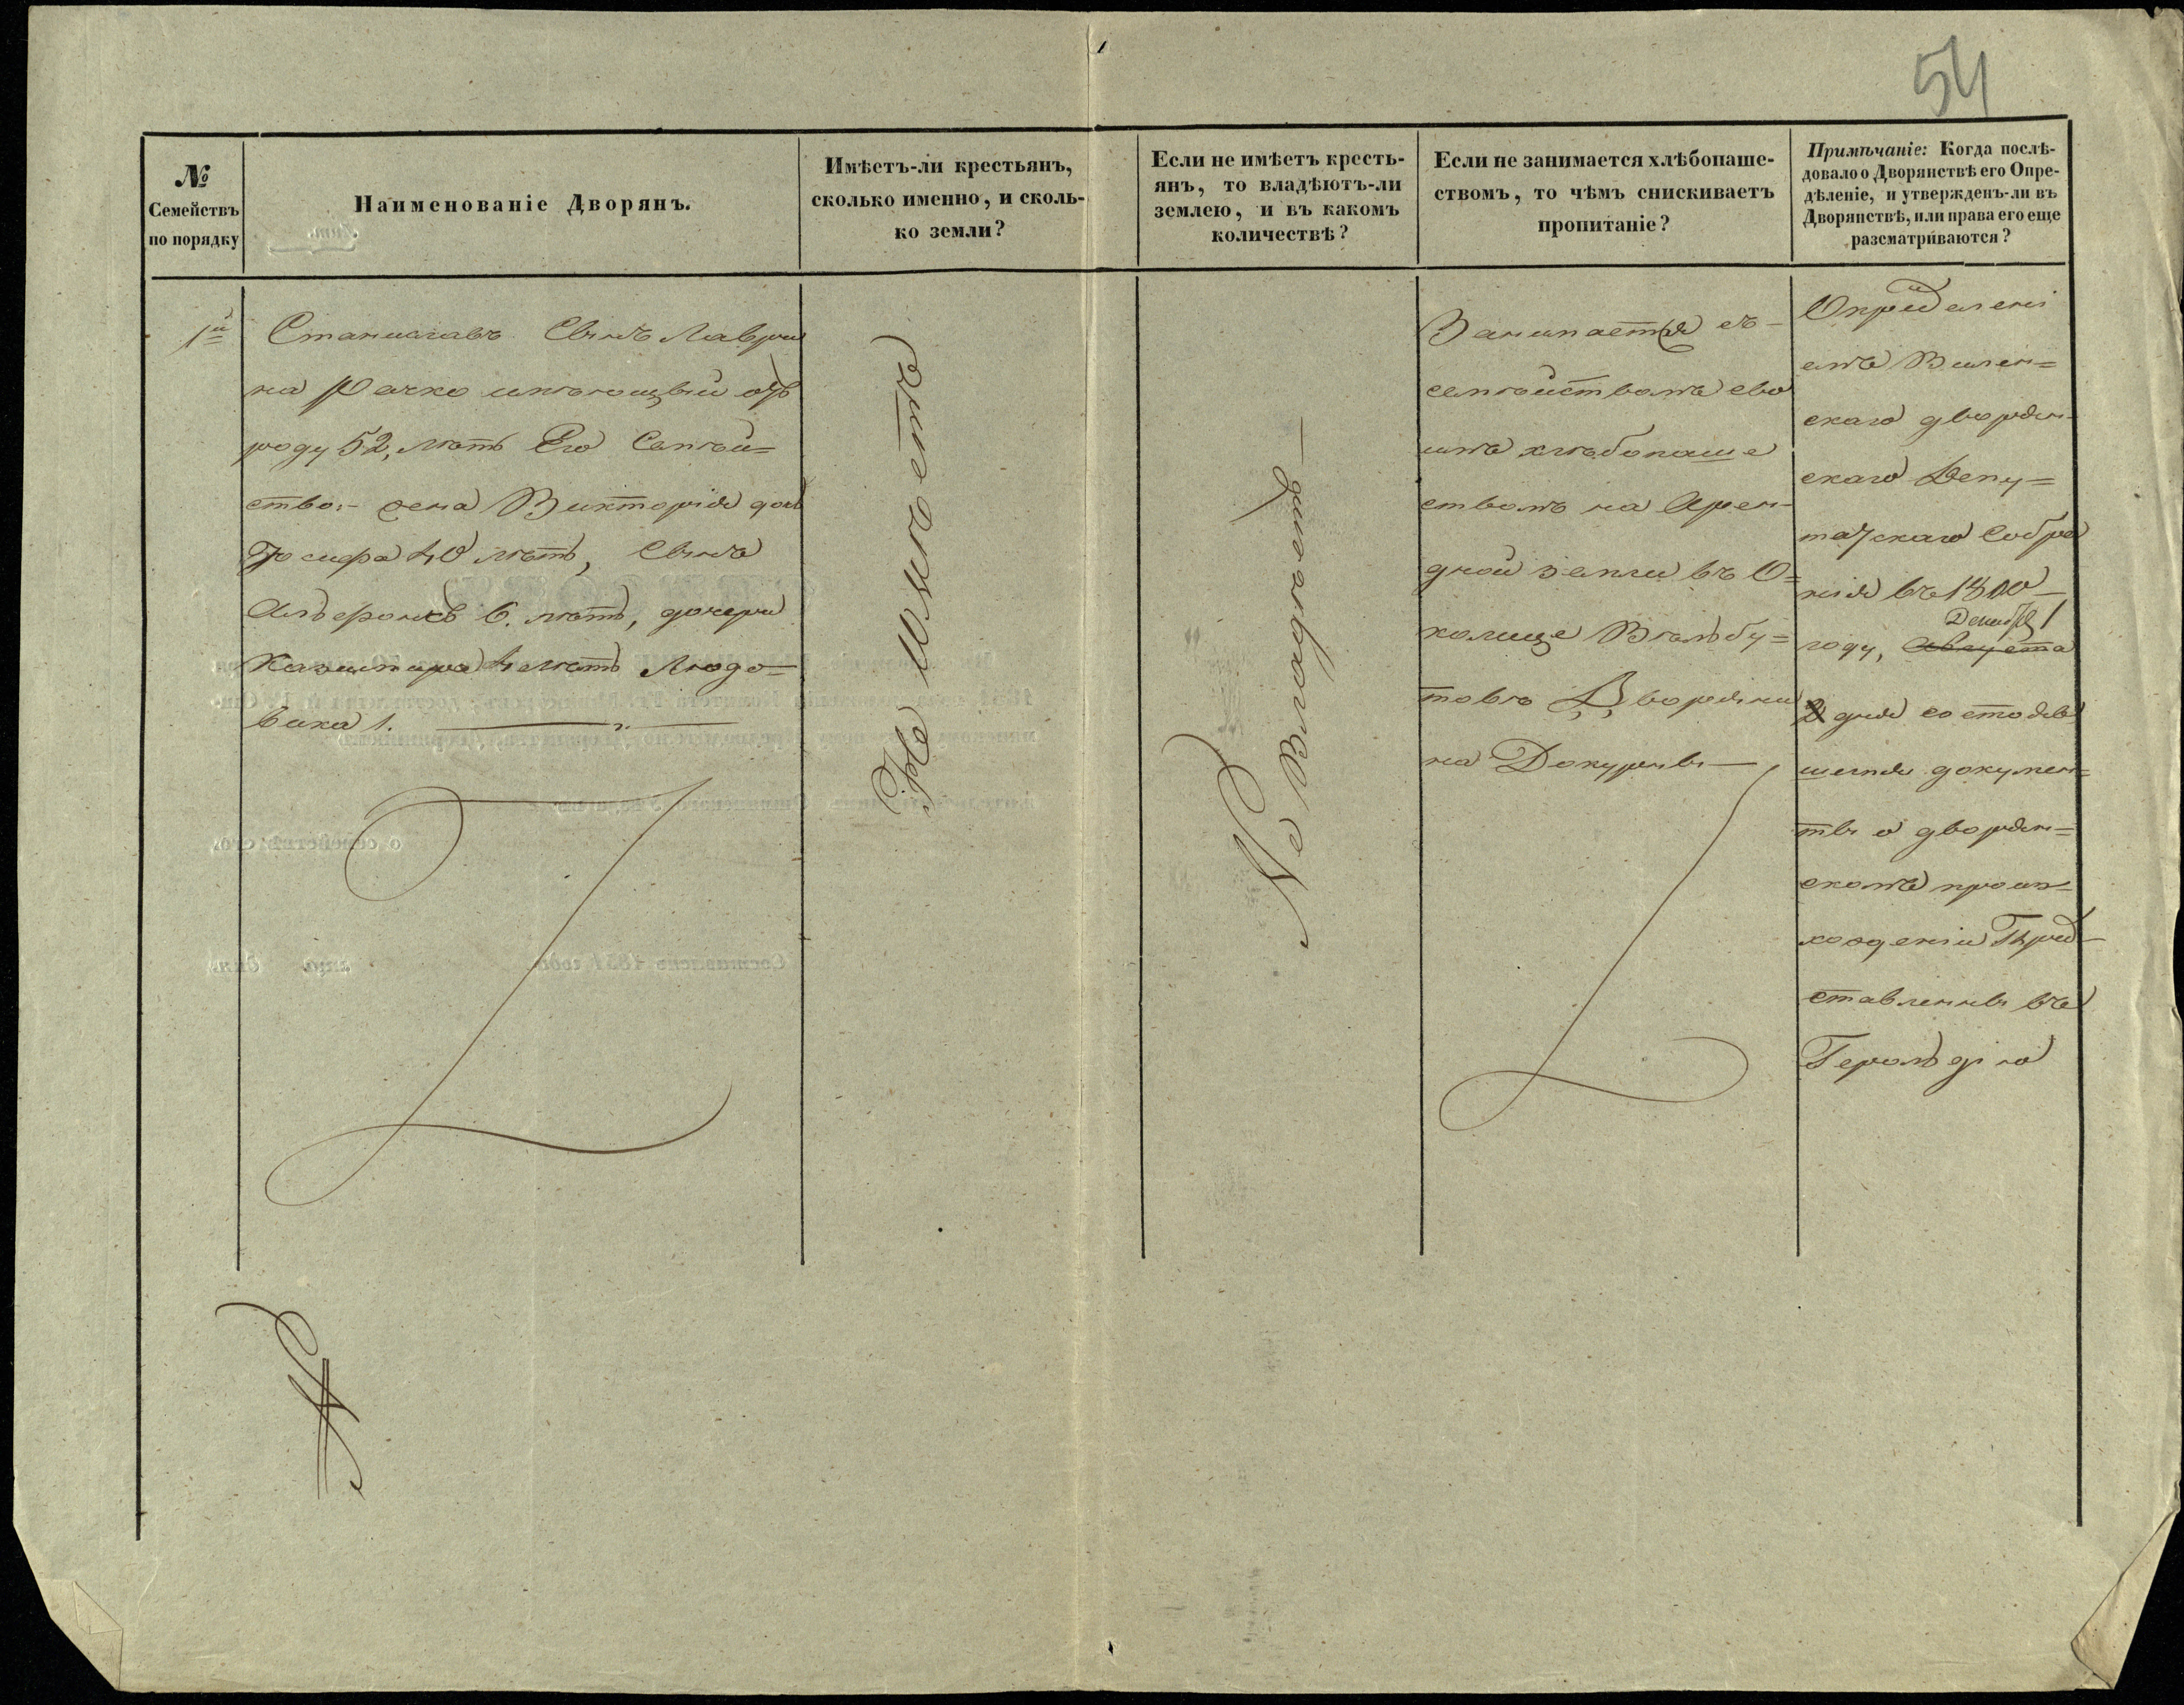 54
№
Семействъ
по порядку
Наименованіе Дворянъ.
Имѣетъ-ли крестьянъ,
сколько именно, и сколь-
ко земли?
Если не имѣетъ кресть-
янъ, то владѣютъ-ли
землею, и въ какомъ
количествѣ?
Если не занимается хлѣбопаше-
ствомъ, то чѣмъ снискиваетъ
пропитаніе?
Примѣчаніе: Когда послѣ-
довало о Дворянствѣ его Опре-
дѣленіе, и утвержденъ-ли въ
Дворянствѣ, или права его еще
разсматриваются?
1й
Станиславъ Сынъ Лаври
на Рачко имѣющый отъ
роду 52, лѣтъ Его Семѣй=
ство:- жена Викторія дочь
Іосифа 40 лѣтъ, Сынъ
Альфонсъ 6. лѣтъ, дочери
Казимира 4 лѣтъ Людо-
вика 1.
Не имѣетъ
Не Владѣетъ
Занимается съ-
семѣйствомъ сво
имъ хлѣбопаше
ствомъ на Арен-
дной земли въ О=
колице
Дворяни
на
Опредѣлені
емъ Вилен=
скаго дворян-
скаго Депу=
татскаго Собра
нія въ 1800
году, Августа
Декабря
2 дня состояв
шемъ докумен=
ты о дворян=
скомъ проис-
хожденіи Пред-
ставлены въ
Герольдію